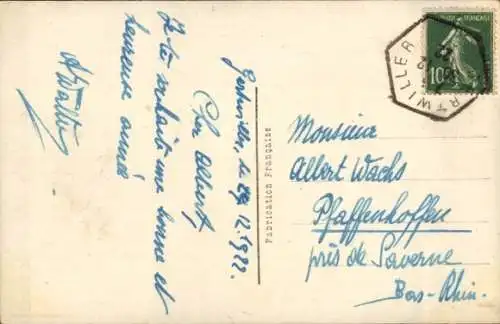 Gertwiller, le 29.12.1922.
Cher Albert,
Je te souhaite une bonne et
heureuse année
A Walter
Fabrication Française
10
RTWILLER
Monsieur
Albert Wachs
Pfaffenhoffen
près de Saverne
Bas-Rhin.